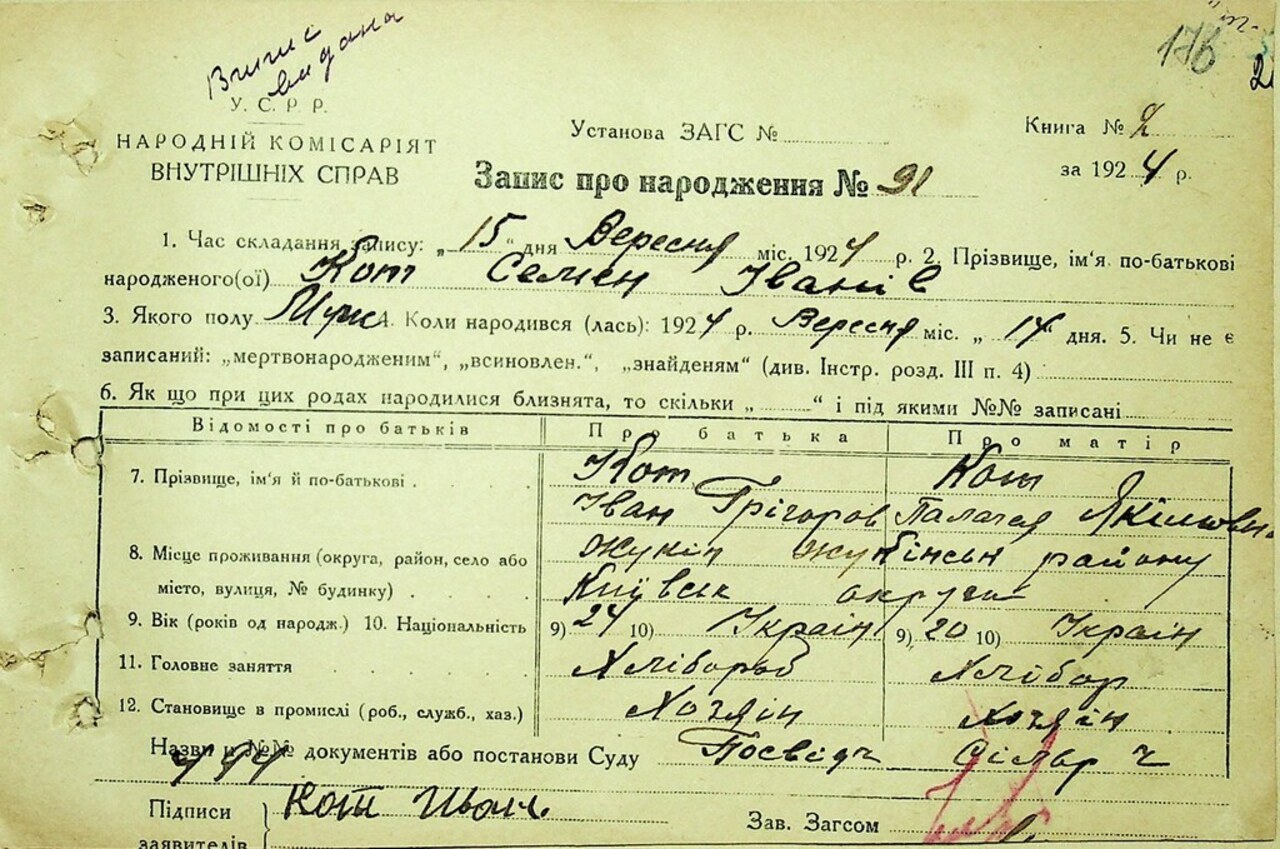 Випис
видана
176
2
У. С. Р. Р.
НАРОДНІЙ КОМІСАРІЯТ
ВНУТРІШНІХ СПРАВ
Установа ЗАГС №
Книга № 2
за 1924 р.
Запис про народження № 91
1. Час складання запису: „ 15 “ дня Вересня міс. 1924 р. 2. Прізвище, ім'я по-батькові
народженого(ої) Кот Семен Іванів
3. Якого полу Муж 4. Коли народився (лась): 1924 р. Вересня міс. „ 14 “ дня. 5. Чи не є
записаний: „мертвонародженим“, „всиновлен.“, „знайденям“ (див. Інстр. розд. III п. 4)
6. Як що при цих родах народилися близнята, то скільки „ “ і під якими №№ записані
Відомості про батьків Про батька Про матір
7. Прізвище, ім'я й по-батькові Кот Кот
Іван Грігоров Палагея
8. Місце проживання (округа, район, село або Жукін Жукінськ району
місто, вулиця, № будинку) Київськ округи
9. Вік (років од народж.) 10. Національність 9) 24 10) Україн 9) 20 10) Україн
11. Головне заняття Хлібороб Хлібор
12. Становище в промислі (роб., служб., хаз.) Хозяін Хозяін
Назви и №№ документів або постанови Суду Посвідч Сільр
Підписи Кот Иван.
заявителів
Зав. Загсом